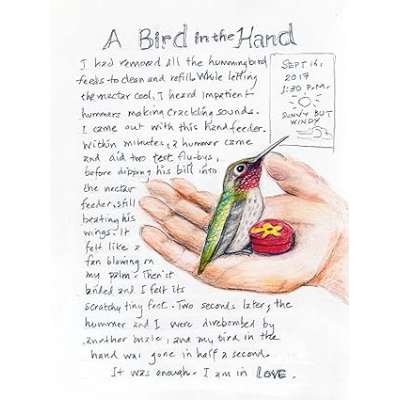 A Bird in the Hand
I had removed all the hummingbird
feeds to clean and refill. While letting
the nectar cool, I heard impatient
hummers making crackling sounds.
I came out with this hand feeder.
Within minutes, a hummer came
and did two test fly-bys,
before dipping his bill into
the nectar
feeder, still
beating his
wings. It
felt like a
fan blowing on
my palm. Then it
landed and I felt its
scratchy tiny feet. Two seconds later, the
hummer and I were divebombed by
another male, and my bird in the
hand was gone in half a second.
It was enough. I am in LOVE.
SEPT 16,
2017
1:30 P.M.
SUNNY BUT
WINDY